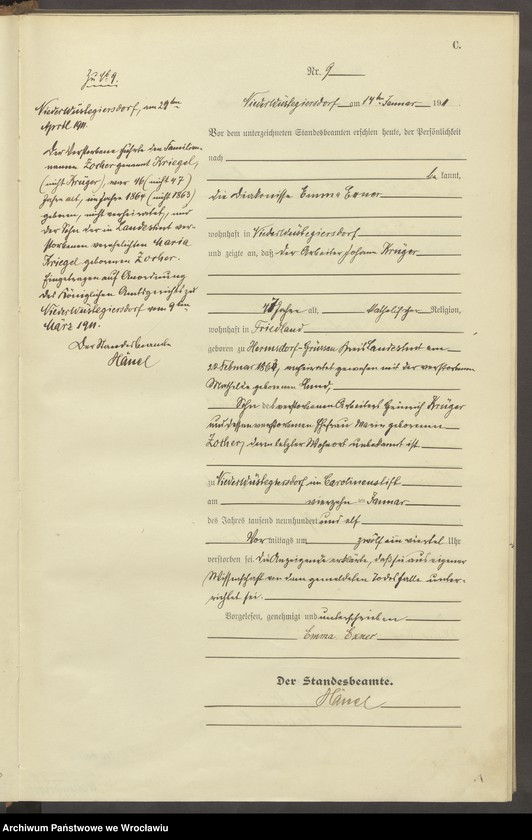 C.
Nr. 9
Niederwüstegiersdorf am 14ten Januar 1911
Vor dem unterzeichneten Standesbeamten erschien heute, der Persönlichkeit
nach
be kannt,
die Diakonisse Emma Exner
wohnhaft in Niederwüstegiersdorf
und zeigte an, daß der Arbeiter Johann Krüger
47 Jahre alt, katholischer Religion,
wohnhaft in Friedland
geboren zu Hermsdorf-Grüssau Kreis Landeshut am
22 Februar 1863, verheiratet gewesen mit der verstorbenen
Mathilde geborenen
Sohn des verstorbenen Arbeiters Heinrich Krüger
und dessen verstorbenen Ehefrau Marie geborenen
Zocher, deren letzter Wohnort unbekannt ist
zu Niederwüstegiersdorf im Carolinenstift
am vierzehn ten Januar
des Jahres tausend neunhundert und elf
Vor mittags um zwölf ein viertel Uhr
verstorben sei. Die Anzeigende erklärte, daß sie aus eigener
Wissenschaft von dem gemeldeten Todesfalle unter-
richtet sei.
Vorgelesen, genehmigt und unterschrieben
Emma Exner
Der Standesbeamte.
Hänel
Zu No 9.
Niederwüstegiersdorf, am 29ten
April 1911.
Der Verstorbene führte den Familien-
namen Zocher genannt Kriegel,
(nicht Krüger), war 46 (nicht 47)
Jahre alt, im Jahre 1864 (nicht 1863)
geboren, nicht verheiratet, und
der Sohn der in Landeshut ver-
storbenen verehelichten Maria
Kriegel geborenen Zocher.
Eingetragen auf Anordnung
des Königlichen Amtsgerichts zu
Niederwüstegiersdorf vom 9ten
März 1911.
Der Standesbeamte
Hänel
Archiwum Państwowe we Wrocławiu